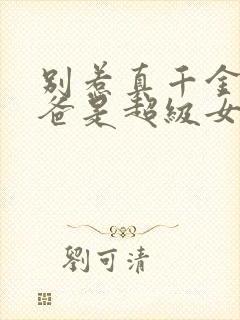 别惹真千金
爸是超级女
劉可清